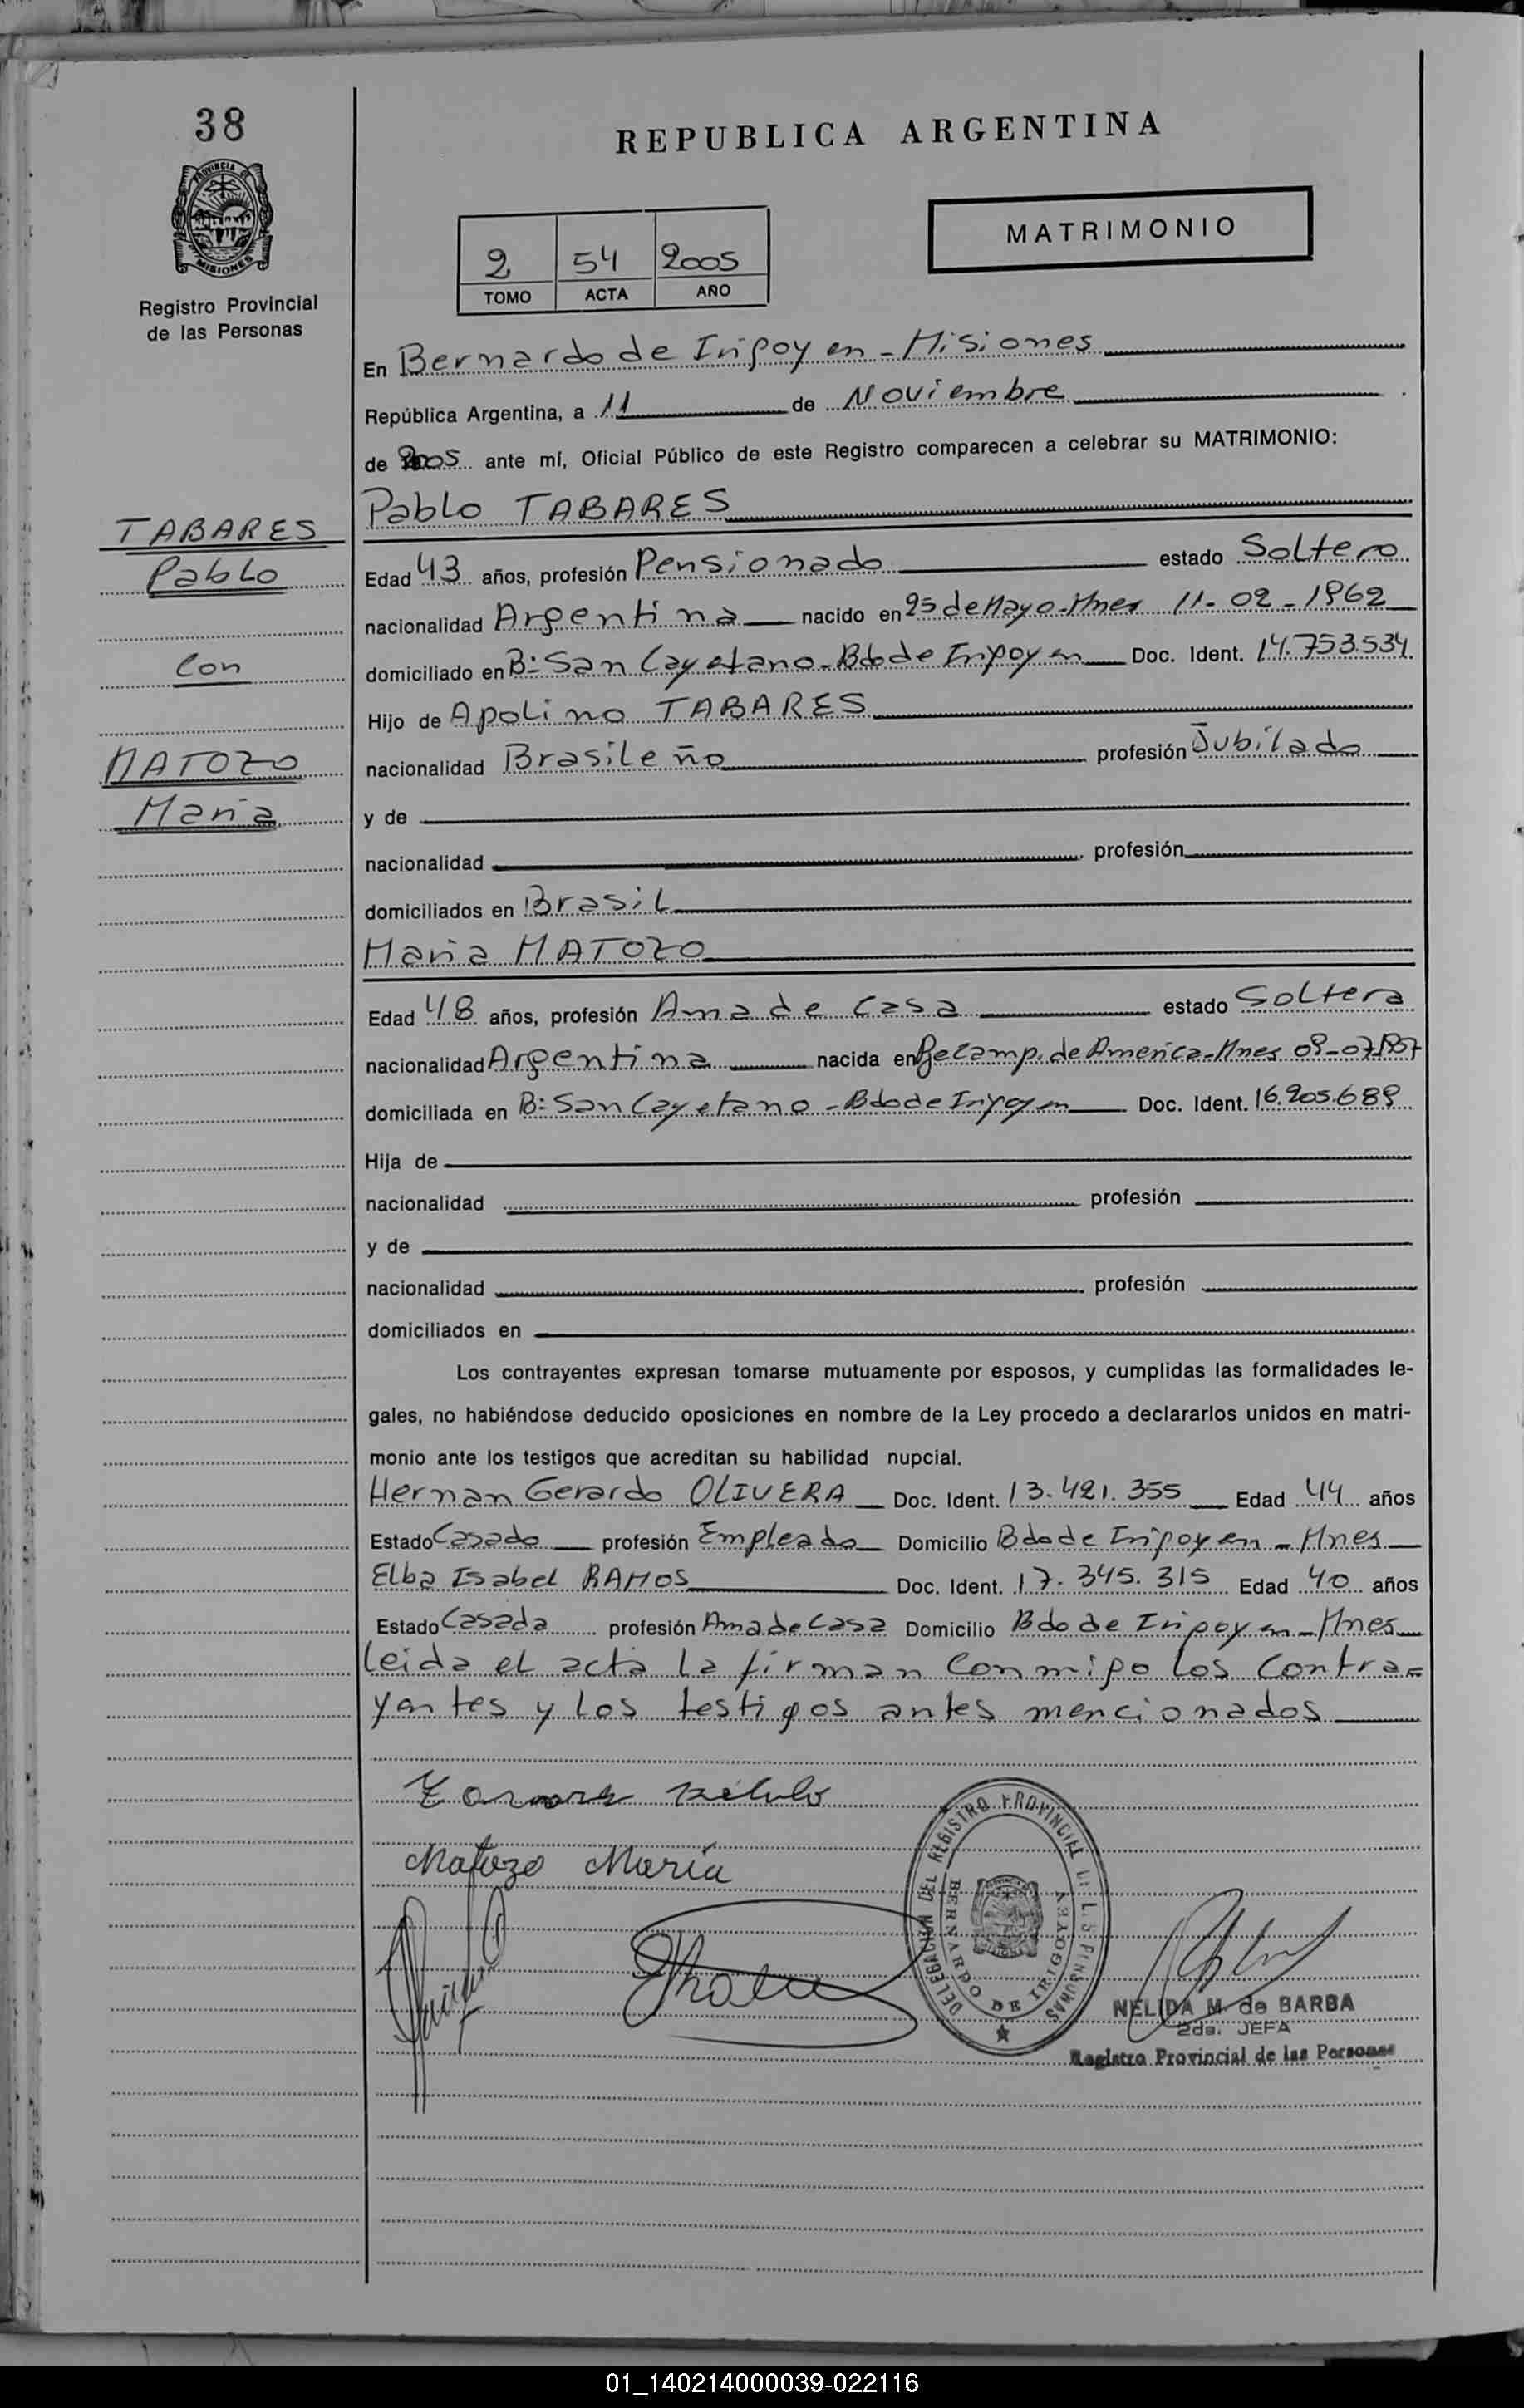 38
REPUBLICA ARGENTINA
PROVINCIA DE
MISIONES
Registro Provincial
de las Personas
2 54 2005
TOMO ACTA AÑO
MATRIMONIO
En Bernardo de Irigoyen - Misiones
República Argentina, a 11 de Noviembre
de 2005 ante mí, Oficial Público de este Registro comparecen a celebrar su MATRIMONIO:
TABARES
Pablo
con
MATOZO
Maria
Pablo TABARES
Edad 43 años, profesión Pensionado estado Soltero
nacionalidad Argentina nacido en 25 de Mayo-Mnes 11-02-1962
domiciliado en B: San Cayetano-Bdo de Irigoyen Doc. Ident. 14.753.534
Hijo de Apolino TABARES
nacionalidad Brasileño profesión Jubilado
y de
nacionalidad profesión
domiciliados en Brasil
Maria MATOZO
Edad 48 años, profesión Ama de casa estado Soltera
nacionalidad Argentina nacida en de America-Mnes 09-07-1957
domiciliada en B: San Cayetano-Bdo de Irigoyen Doc. Ident. 16.905.689
Hija de
nacionalidad profesión
y de
nacionalidad profesión
domiciliados en
Los contrayentes expresan tomarse mutuamente por esposos, y cumplidas las formalidades le-
gales, no habiéndose deducido oposiciones en nombre de la Ley procedo a declararlos unidos en matri-
monio ante los testigos que acreditan su habilidad nupcial.
Hernan Gerardo OLIVERA Doc. Ident. 13.421.355 Edad 44 años
Estado Casado profesión Empleado Domicilio Bdo de Irigoyen - Mnes
Elba Isabel RAMOS Doc. Ident. 17.345.315 Edad 40 años
Estado Casada profesión Ama de Casa Domicilio Bdo de Irigoyen - Mnes
leida el acta la firman conmigo los contra=
yentes y los testigos antes mencionados
Matozo María
DELEGACION DEL REGISTRO PROVINCIAL DE LAS PERSONAS
BERNARDO DE IRIGOYEN
NELIDA M. de BARBA
2da. JEFA
Registro Provincial de las Personas
01_140214000039-022116